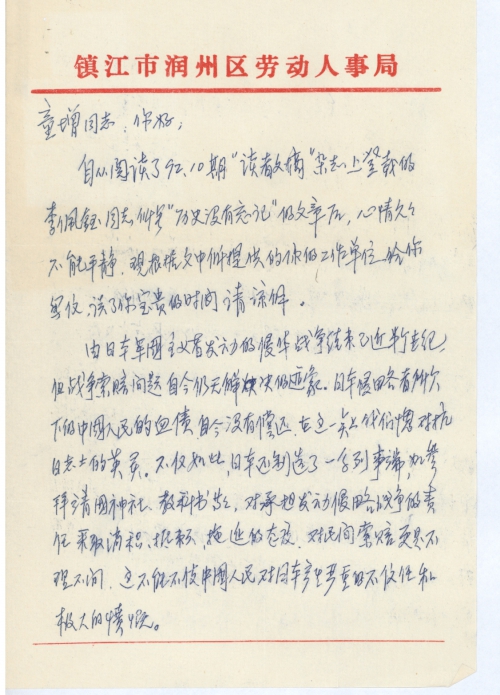 镇江市润州区劳动人事局
童增同志：你好：
自从阅读了92.10期“读者文摘”杂志上登载的
李佩钰同志所写“历史没有忘记”的文章后，心情久久
不能平静，现根据文中所提供的你的工作单位给你
写信，误了你宝贵的时间请谅解。
由日本军国主义者发动的侵华战争结束了近半世纪，
但战争索赔问题自今仍无解决的迹象。日本侵略者所欠
下的中国人民的血债自今没有偿还，在这一点上我们愧对抗
日志士的英灵。不仅如此，日本还制造了一系列事端，如参
拜靖国神社、教科书等，对承担发动侵略战争的责
任采取消极、抵赖、拖延的态度，对民间索赔更是不
理不问，这不能不使中国人民对日本产生严重的不信任和
极大的愤慨。